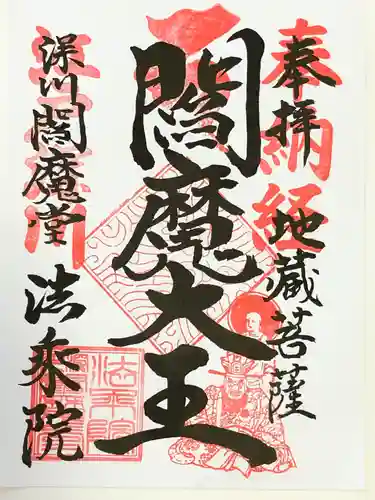 奉拝
地蔵菩薩
納経
閻魔大王
深川閻魔堂
法乗院